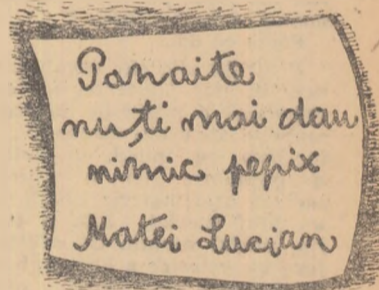 Panaite
nu ți mai dau
nimic pepix
Matei Lucian